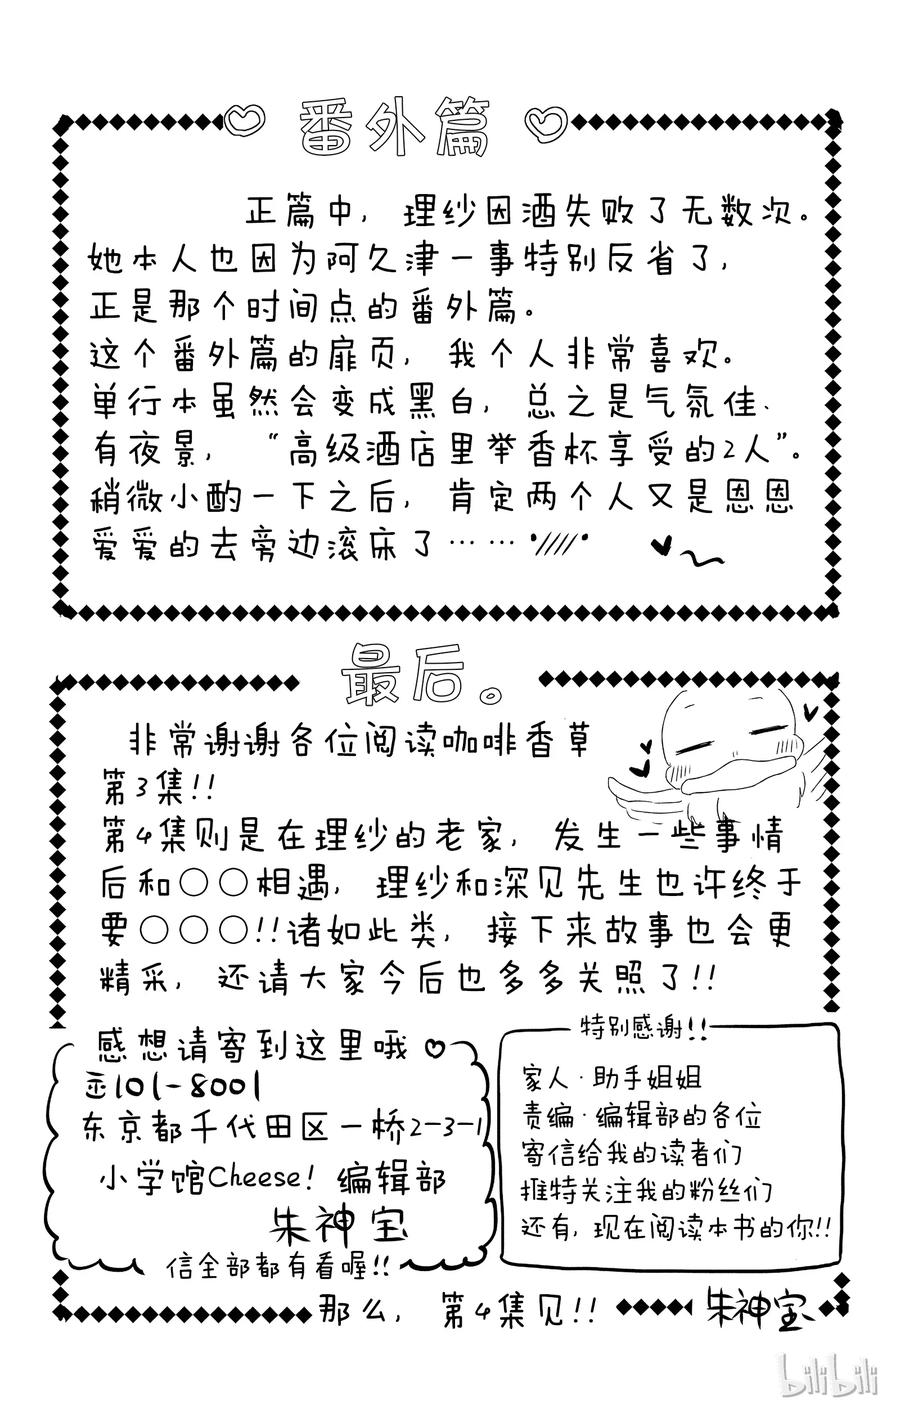 番外篇
正篇中, 理纱因酒失败了无数次。
她本人也因为阿久津一事特别反省了,
正是那个时间点的番外篇。
这个番外篇的扉页, 我个人非常喜欢。
单行本虽然会变成黑白, 总之是气氛佳、
有夜景, “高级酒店里举香杯享受的2人”。
稍微小酌一下之后, 肯定两个人又是恩恩
爱爱的去旁边滚床了……
最后。
非常谢谢各位阅读咖啡香草
第3集!!
第4集则是在理纱的老家, 发生一些事情
后和○○相遇, 理纱和深见先生也许终于
要○○○!!诸如此类, 接下来故事也会更
精采, 还请大家今后也多多关照了!!
感想请寄到这里哦
101-8001
东京都千代田区一桥2-3-1
小学馆Cheese! 编辑部
朱神宝
信全部都有看喔!!
特别感谢!!
家人·助手姐姐
责编·编辑部的各位
寄信给我的读者们
推特关注我的粉丝们
还有, 现在阅读本书的你!!
那么, 第4集见!!
朱神宝
bilibili